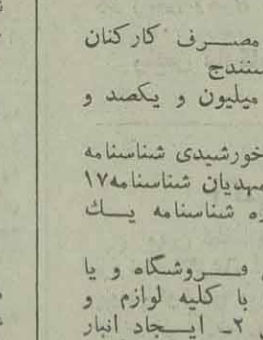 مصرف کارکنان
سنندج
میلیون و یکصد و
خورشیدی شناسنامه
مهدیان شناسنامه ۱۷
شناسنامه یک
فروشگاه و یا
با کلیه لوازم و
۲ـ ایجاد انبار